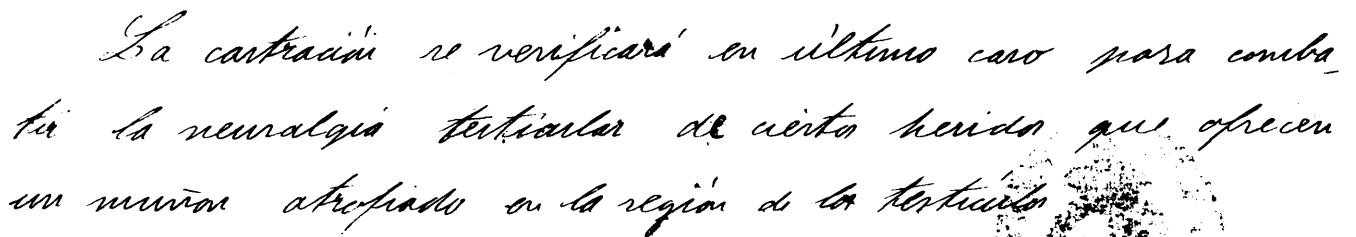 La castración se verificará en último caso para comba-
tir la neuralgia testicular de ciertos heridos que ofrecen
un muñon atrofiado en la región de los testículos